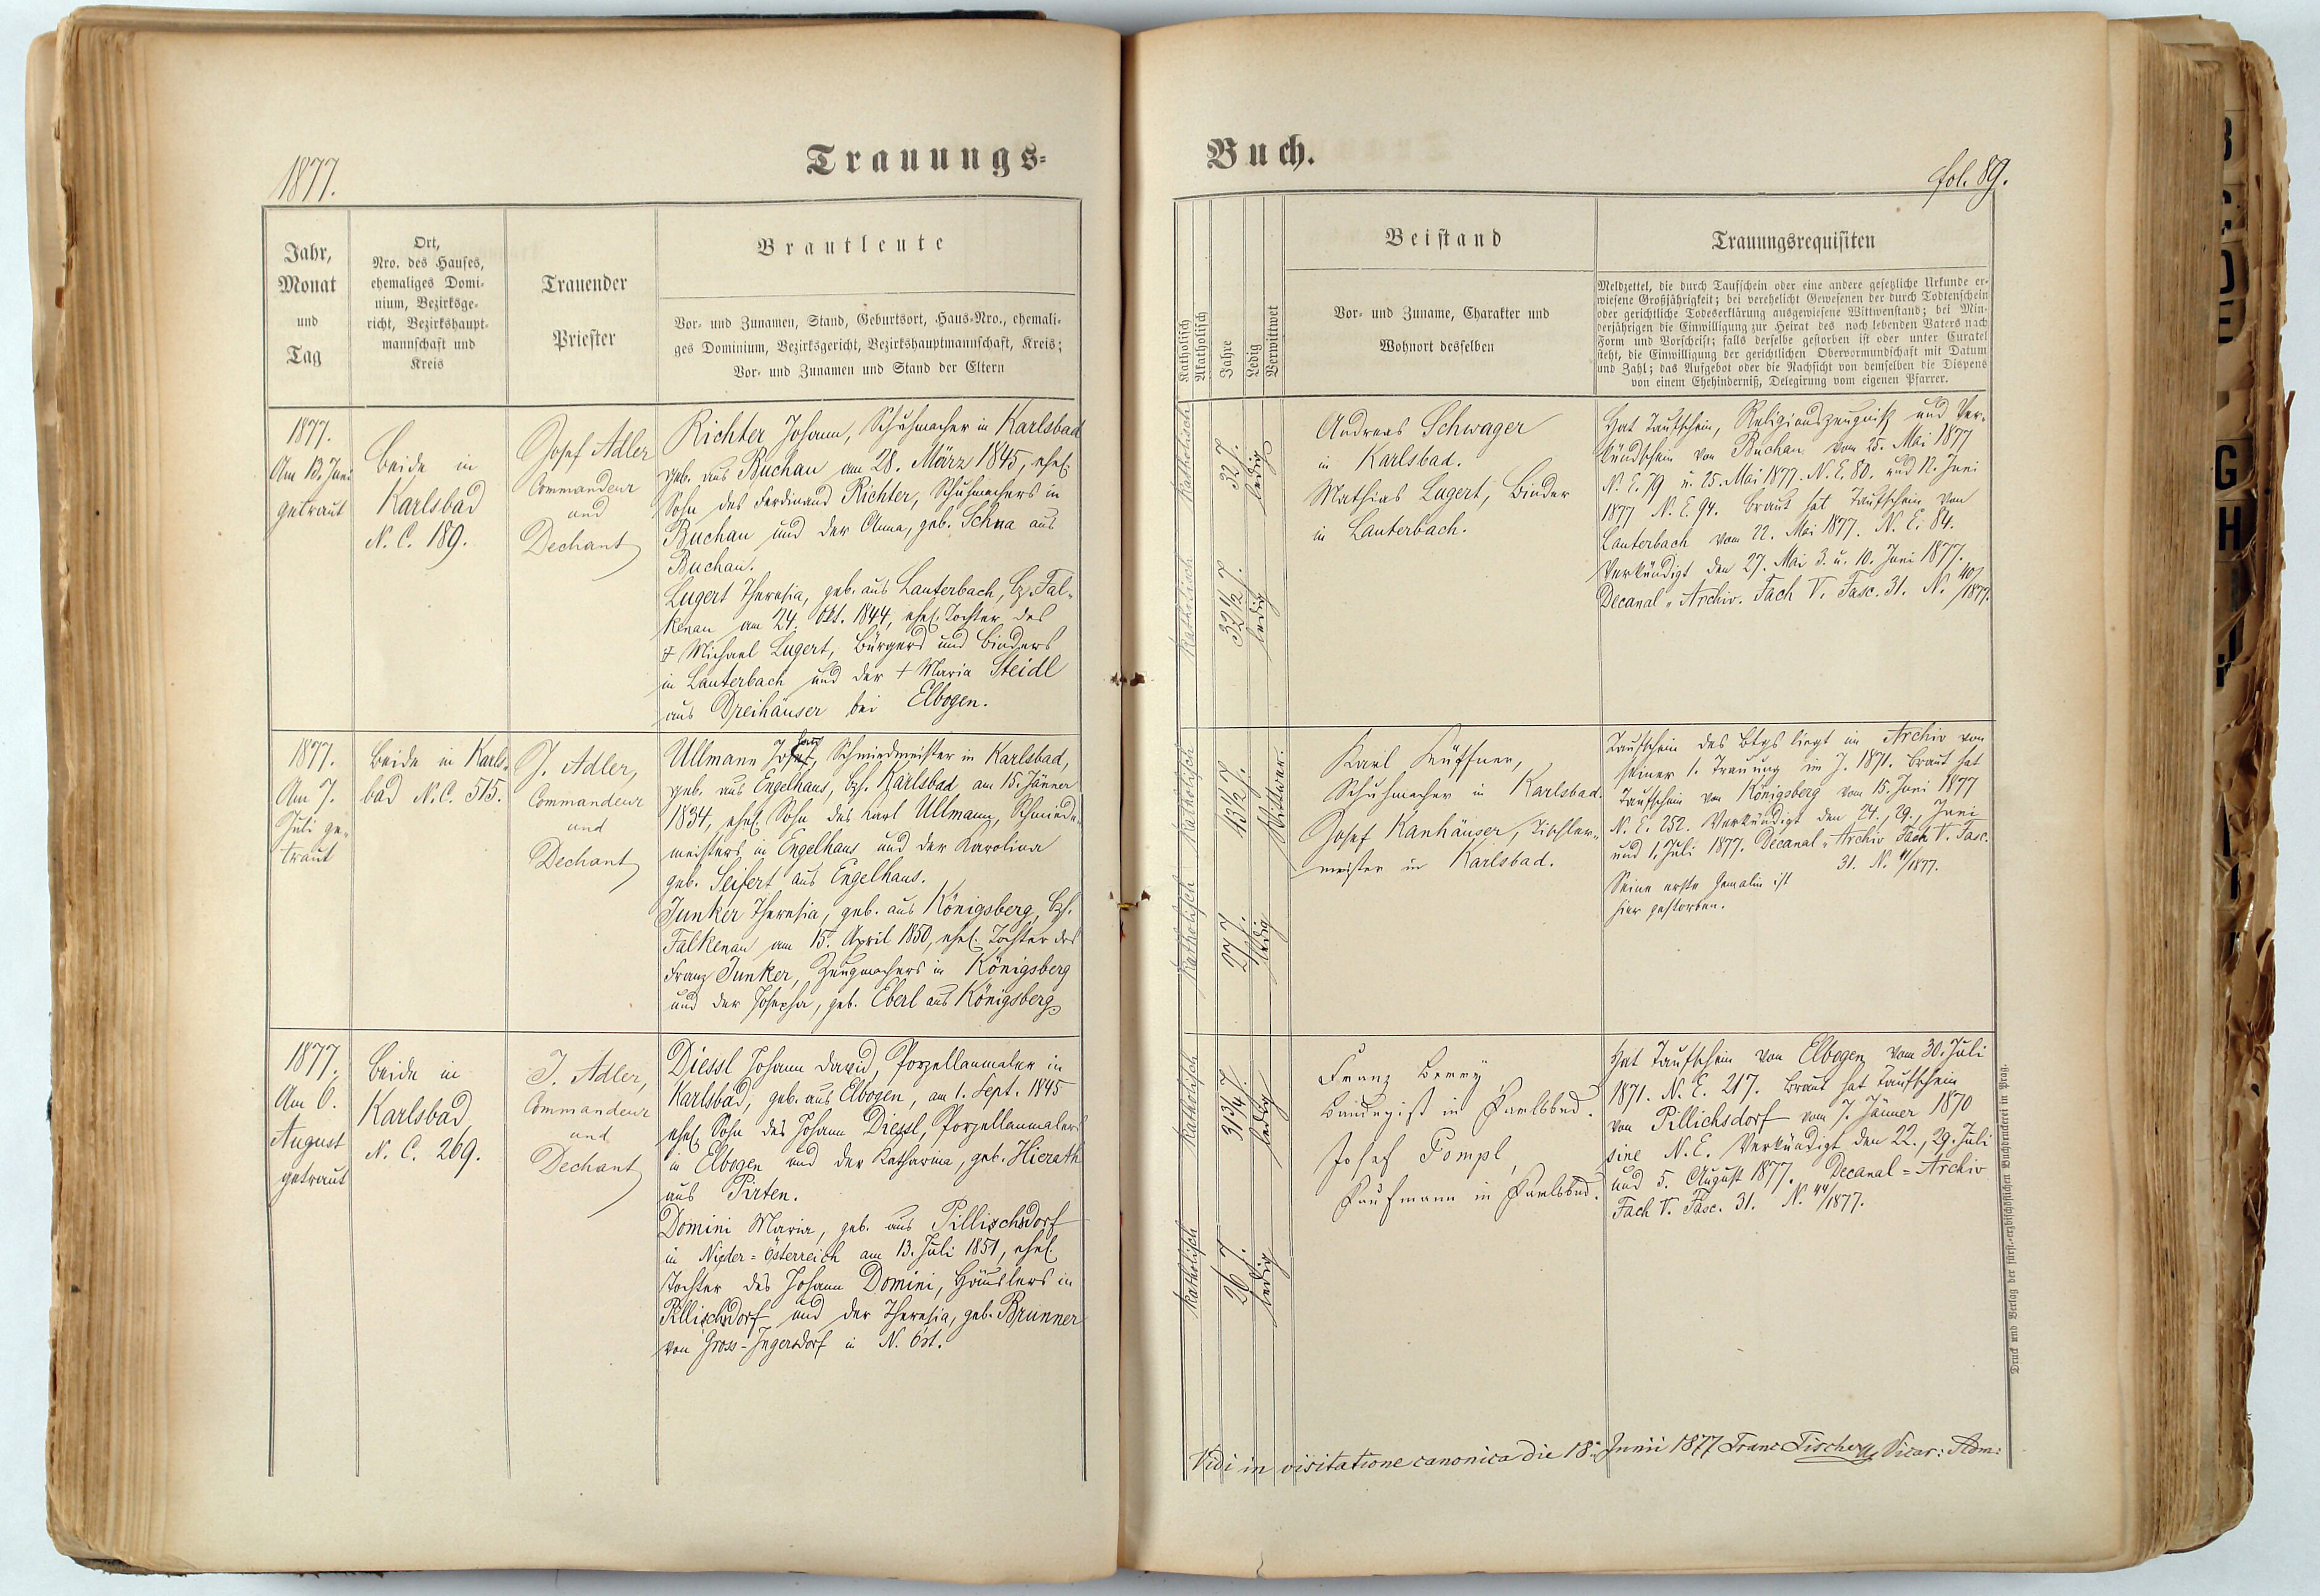 1877.
Trauungs-
Jahr,
Monat
und
Tag
Ort,
Nro. des Hauses,
ehemaliges Domi-
nium, Bezirksge-
richt, Bezirkshaupt-
mannschaft und
Kreis
Trauender
Priester
Brautleute
Vor- und Zunamen, Stand, Geburtsort, Haus-Nro., ehemali-
ges Dominium, Bezirksgericht, Bezirkshauptmannschaft, Kreis;
Vor- und Zunamen und Stand der Eltern
1877.
Am 12. Juni
getraut
Beide in
Karlsbad
N. C. 189.
Josef Adler
Commandeur
und
Dechant
Richter Johann, Schuhmacher in Karlsbad
geb. aus Buchau am 28. März 1845, ehel.
Sohn des Ferdinand Richter, Schuhmachers in
Buchau und der Anna, geb. Schna aus
Buchau.
Lugert Theresia, geb. aus Lauterbach, Bz. Fal-
kenau am 24. Okt. 1844, ehel. Tochter des
† Michael Lugert, Bürgers und Binders
in Lauterbach und der † Maria Steidl
aus Dreihäuser bei Elbogen.
1877.
Am 7.
Juli ge-
traut
Beide in Karls-
bad N. C. 515.
J. Adler,
Commandeur
und
Dechant
Ullmann Schmiedmeister in Karlsbad,
geb. aus Engelhaus, Bzh. Karlsbad am 15. Jänner
1834, ehel. Sohn des Karl Ullmann, Schmied-
meisters in Engelhaus und der Karolina
geb. Seifert aus Engelhaus.
Junker Theresia, geb. aus Königsberg, Bzh.
Falkenau am 15. April 1850, ehel. Tochter des
Franz Junker, Zeugmachers in Königsberg
und der Josepha, geb. Eberl aus Königsberg.
1877.
Am 6.
August
getraut
Beide in
Karlsbad,
N. C. 269.
J. Adler,
Commandeur
und
Dechant
Diessl Johann David, Porzellanmaler in
Karlsbad, geb. aus Elbogen, am 1. Sept. 1845
ehel. Sohn des Johann Diessl, Porzellanmalers
in Elbogen und der Katharina, geb. Hierath
aus Pirten.
Domini Maria, geb. aus Pillichsdorf
in Nieder-Österreich am 13. Juli 1851, ehel.
Tochter des Johann Domini, Häuslers in
Pillichsdorf und der Theresia, geb. Brunner
von Gross-Ingersdorf in N. Öst.
Buch.
fol. 89.
Katholisch
Akatholisch
Jahre
Ledig
Verwittwet
Beistand
Vor- und Zuname, Charakter und
Wohnort desselben
Trauungsrequisiten
Meldzettel, die durch Taufschein oder eine andere gesetzliche Urkunde er-
wiesene Großjährigkeit; bei verehelicht Gewesenen der durch Todtenschein
oder gerichtliche Todeserklärung ausgewiesene Wittwenstand; bei Min-
derjährigen die Einwilligung zur Heirat des noch lebenden Vaters nach
Form und Vorschrift; falls derselbe gestorben ist oder unter Curatel
steht, die Einwilligung der gerichtlichen Obervormundschaft mit Datum
und Zahl; das Aufgebot oder die Nachsicht von demselben die Dispens
von einem Ehehinderniß, Delegirung vom eigenen Pfarrer.
Katholisch
32 J.
ledig
Katholisch
32 1/2 J.
ledig
Andreas Schwager
in Karlsbad.
Mathias Lugert, Binder
in Lauterbach.
Hat Taufschein, Religionszeugniß und Ver-
kündschein von Buchau vom 25. Mai 1877
N. E. 79 u. 25. Mai 1877. N. E. 80. und 12. Juni
1877 N. E. 94. Braut hat Taufschein von
Lauterbach vom 22. Mai 1877. N. E. 84.
Verkündigt den 27. Mai 3. u. 10. Juni 1877.
Decanal-Archiv. Fach V. Fasc. 31. N. 40/1877.
Katholisch
43 1/2 J.
Wittwer.
Katholisch
27 J.
ledig
Karl Küffner,
Schuhmacher in Karlsbad.
Josef Kanhäuser, Tischler-
meister in Karlsbad.
Taufschein des Btgs liegt im Archiv von
seiner 1. Trauung im J. 1871. Braut hat
Taufschein von Königsberg vom 15. Juni 1877
N. E. 252. Verkündigt den 24., 29. Juni
und 1. Juli 1877. Decanal-Archiv Fach V. Fasc.
31. N. 41/1877.
Seine erste Gemalin ist
hier gestorben.
Katholisch
31 3/4 J.
ledig
Katholisch
26 J.
ledig
Franz
in Karlsbad.
Josef Pompl,
Kaufmann in Karlsbad.
Hat Taufschein von Elbogen vom 30. Juli
1871. N. E. 217. Braut hat Taufschein
von Pillichsdorf vom 7. Jänner 1870
sine N. E. Verkündigt den 22., 29. Juli
und 5. August 1877. Decanal-Archiv
Fach V. Fasc. 31. N. 44/1877.
Vidi in visitatione canonica die 18. Junii 1877 Franz Fischer Vicar: Adm:
Druck und Verlag der fürst.-erzbischöflichen Buchdruckerei in Prag.